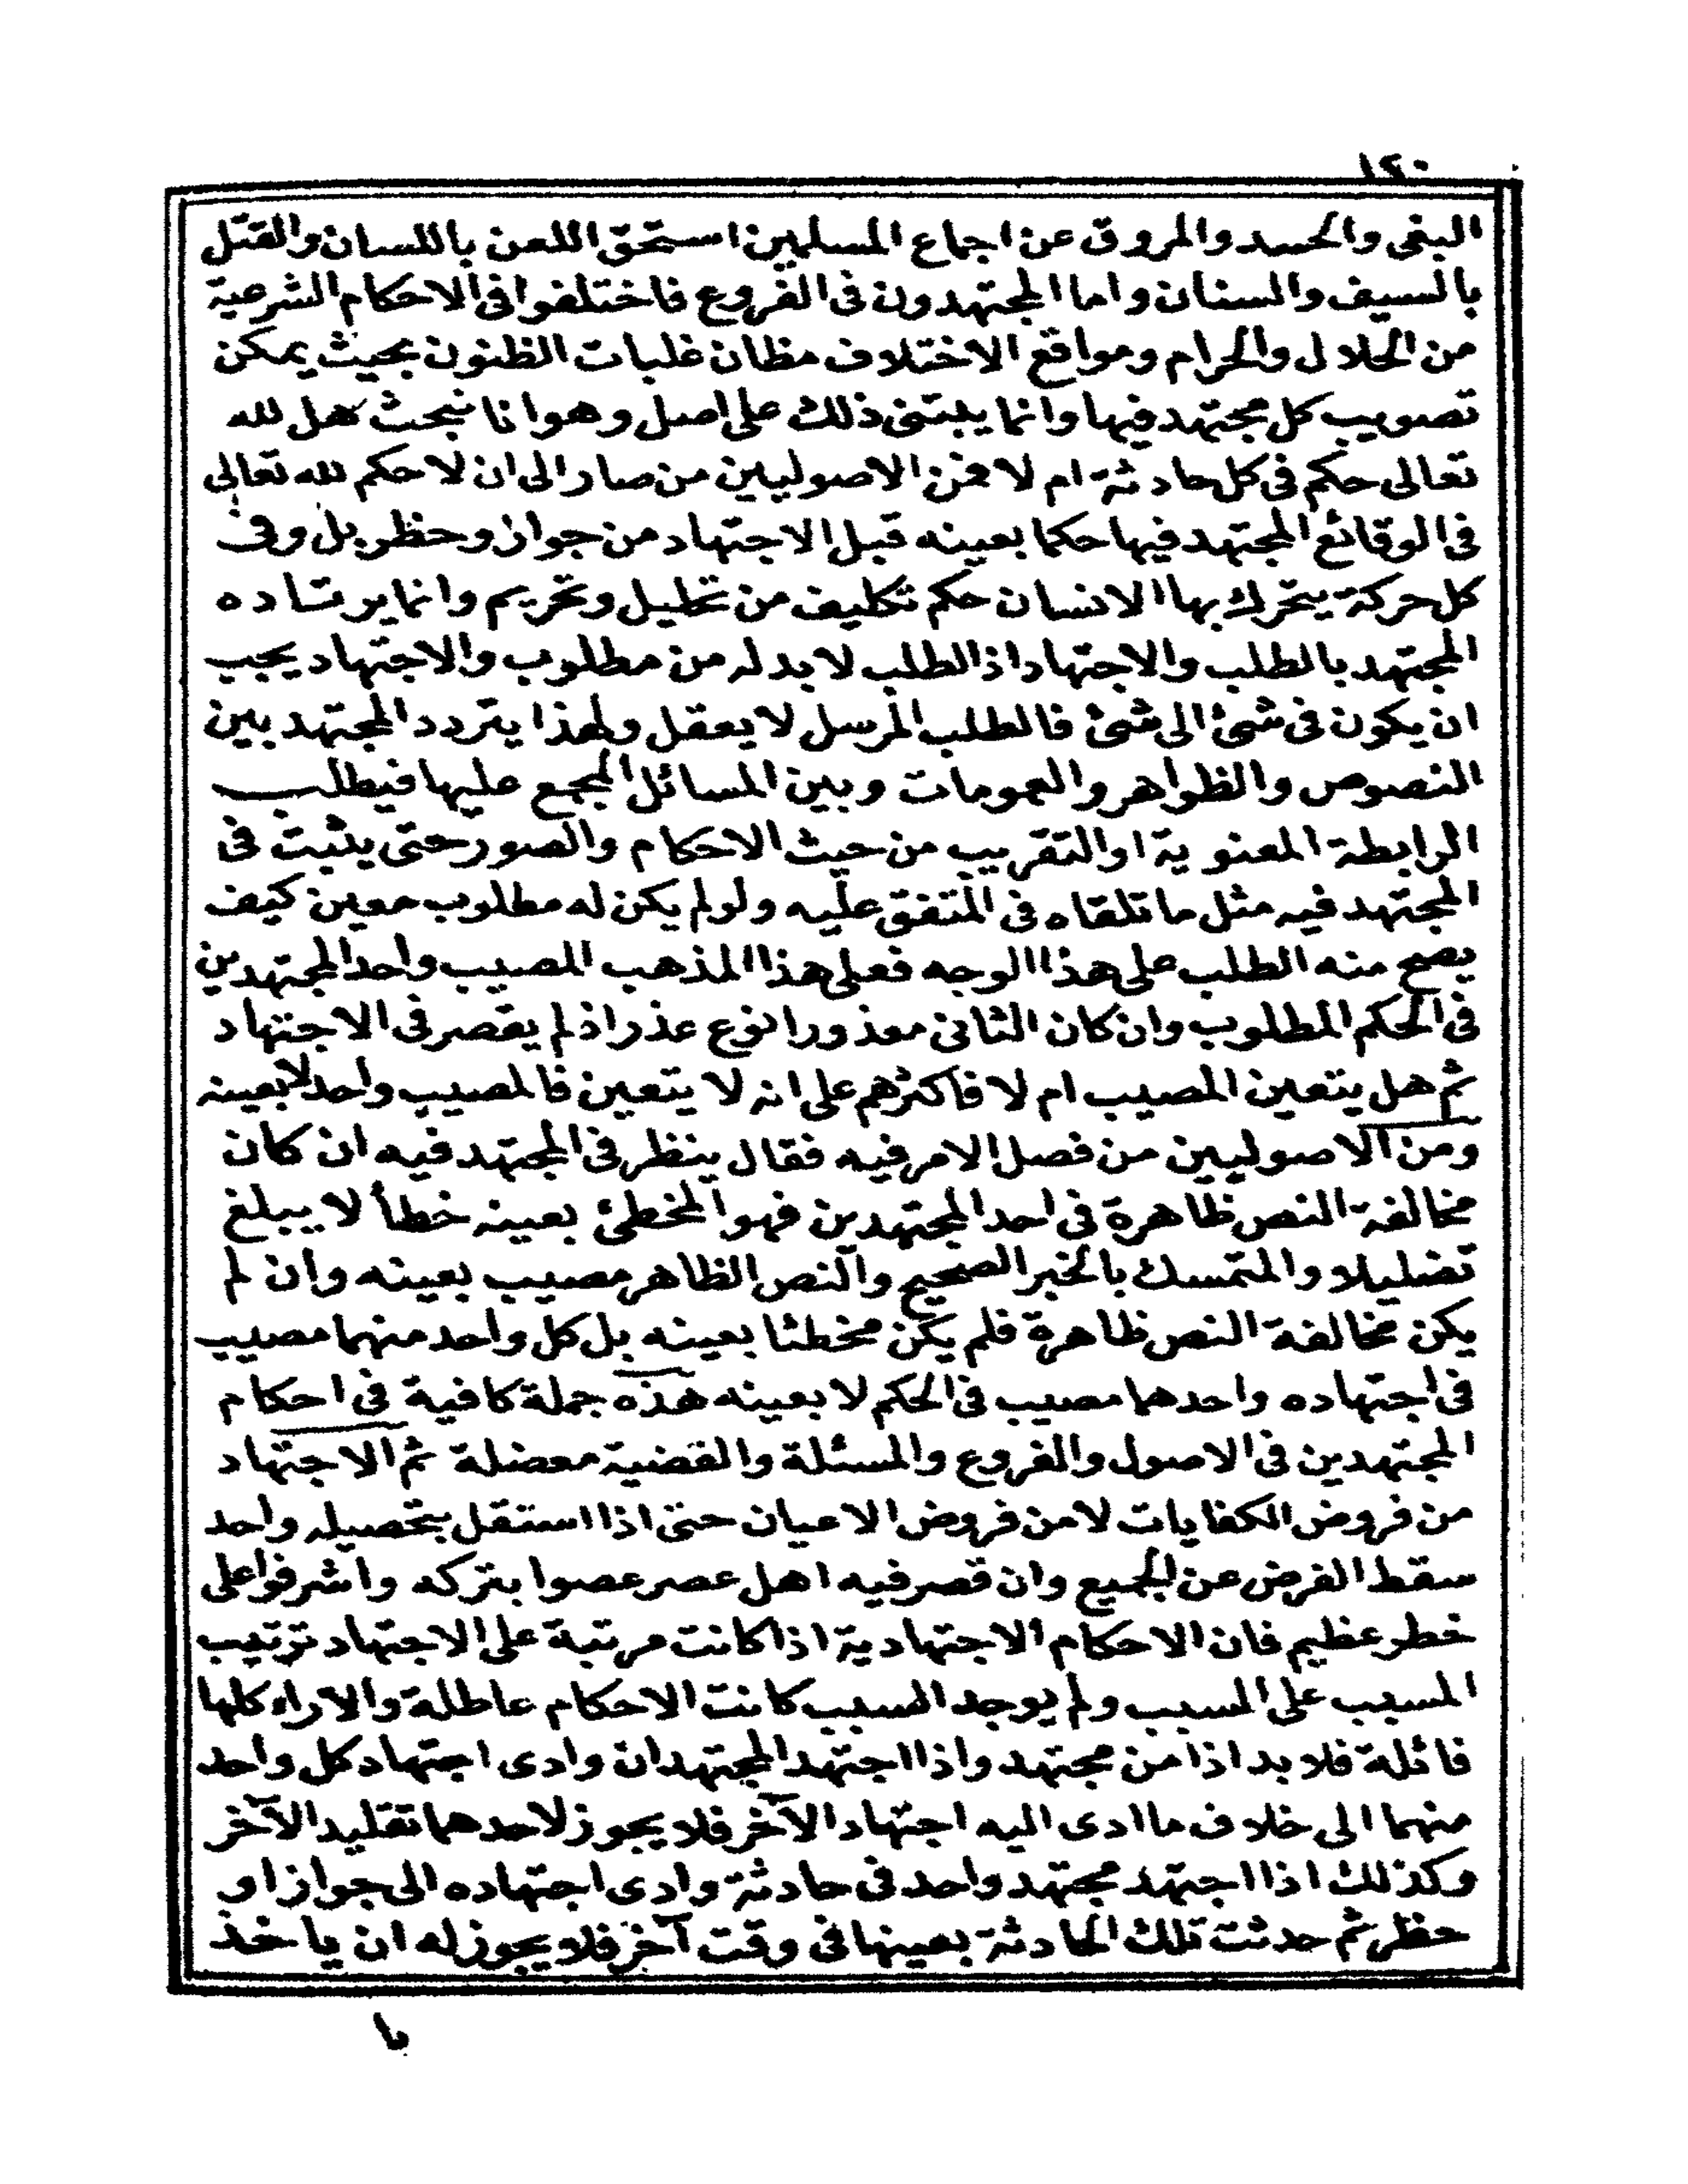 ١٢٠
البغى والحسد والمروق عن اجماع المسلمين استحق اللعن باللسان والقتل
بالسيف والسنان واما المجتهدون فى الفروع فاختلفوا فى الاحكام الشرعية
من الحلال والحرام ومواقع الاختلاف مظان غلبات الظنون بحيث يمكن
تصويب كل مجتهد فيها وانما يبتنى ذلك على اصل وهوا نا نبحث هل لله
تعالى حكم فى كل حادثة ام لا فمن الاصوليين من صار الى ان لا حكم لله تعالى
فى الوقائع المجتهد فيها حكما بعينه قبل الاجتهاد من جواز وحظر بل وفى
كل حركة يتحرك بها الانسان حكم تكليف من تحليل وتحريم وانما يرتاده
المجتهد بالطلب والاجتهاد اذ الطلب لا بد له من مطلوب والاجتهاد يجب
ان يكون فى شئ الى شئ فالطلب المرسل لا يعقل ولهذا يتردد المجتهد بين
النصوص والظواهر والعمومات وبين المسائل المجمع عليها فيطلب
الرابطة المعنوية او التقريب من حيث الاحكام والصور حتى يثبت فى
المجتهد فيه مثل ما تلقاه فى المتفق عليه ولو لم يكن له مطلوب معين كيف
يصح منه الطلب على هذا الوجه فعلى هذا المذهب المصيب واحد المجتهدين
فى الحكم المطلوب وان كان الثانى معذورا نوع عذر اذ لم يقصر فى الاجتهاد
ثم هل يتعين المصيب ام لا فاكثرهم على انه لا يتعين فالمصيب واحد لا بعينه
ومن الاصوليين من فصل الامر فيه فقال ينظر فى المجتهد فيه ان كان
مخالفة النص ظاهرة فى احد المجتهدين فهو المخطئ بعينه خطأ لا يبلغ
تضليلا والمتمسك بالخبر الصحيح والنص الظاهر مصيب بعينه وان لم
يكن مخالفة النص ظاهرة فلم يكن مخطئا بعينه بل كل واحد منهما مصيب
فى اجتهاده واحدهما مصيب فى الحكم لا بعينه هذه جملة كافية فى احكام
المجتهدين فى الاصول والفروع والمسئلة والقضية معضلة ثم الاجتهاد
من فروض الكفايات لا من فروض الاعيان حتى اذا استقل بتحصيله واحد
سقط الفرض عن الجميع وان قصر فيه اهل عصر عصوا بتركه واشرفوا على
خطر عظيم فان الاحكام الاجتهادية اذا كانت مرتبة على الاجتهاد ترتيب
المسبب على السبب ولم يوجد السبب كانت الاحكام عاطلة والاراء كلها
فائلة فلا بد اذا من مجتهد واذا اجتهد المجتهدان وادى اجتهاد كل واحد
منهما الى خلاف ما ادى اليه اجتهاد الآخر فلا يجوز لاحدهما تقليد الآخر
وكذلك اذا اجتهد مجتهد واحد فى حادثة وادى اجتهاده الى جواز او
حظر ثم حدثت تلك الحادثة بعينها فى وقت آخر فلا يجوز له ان ياخذ
با